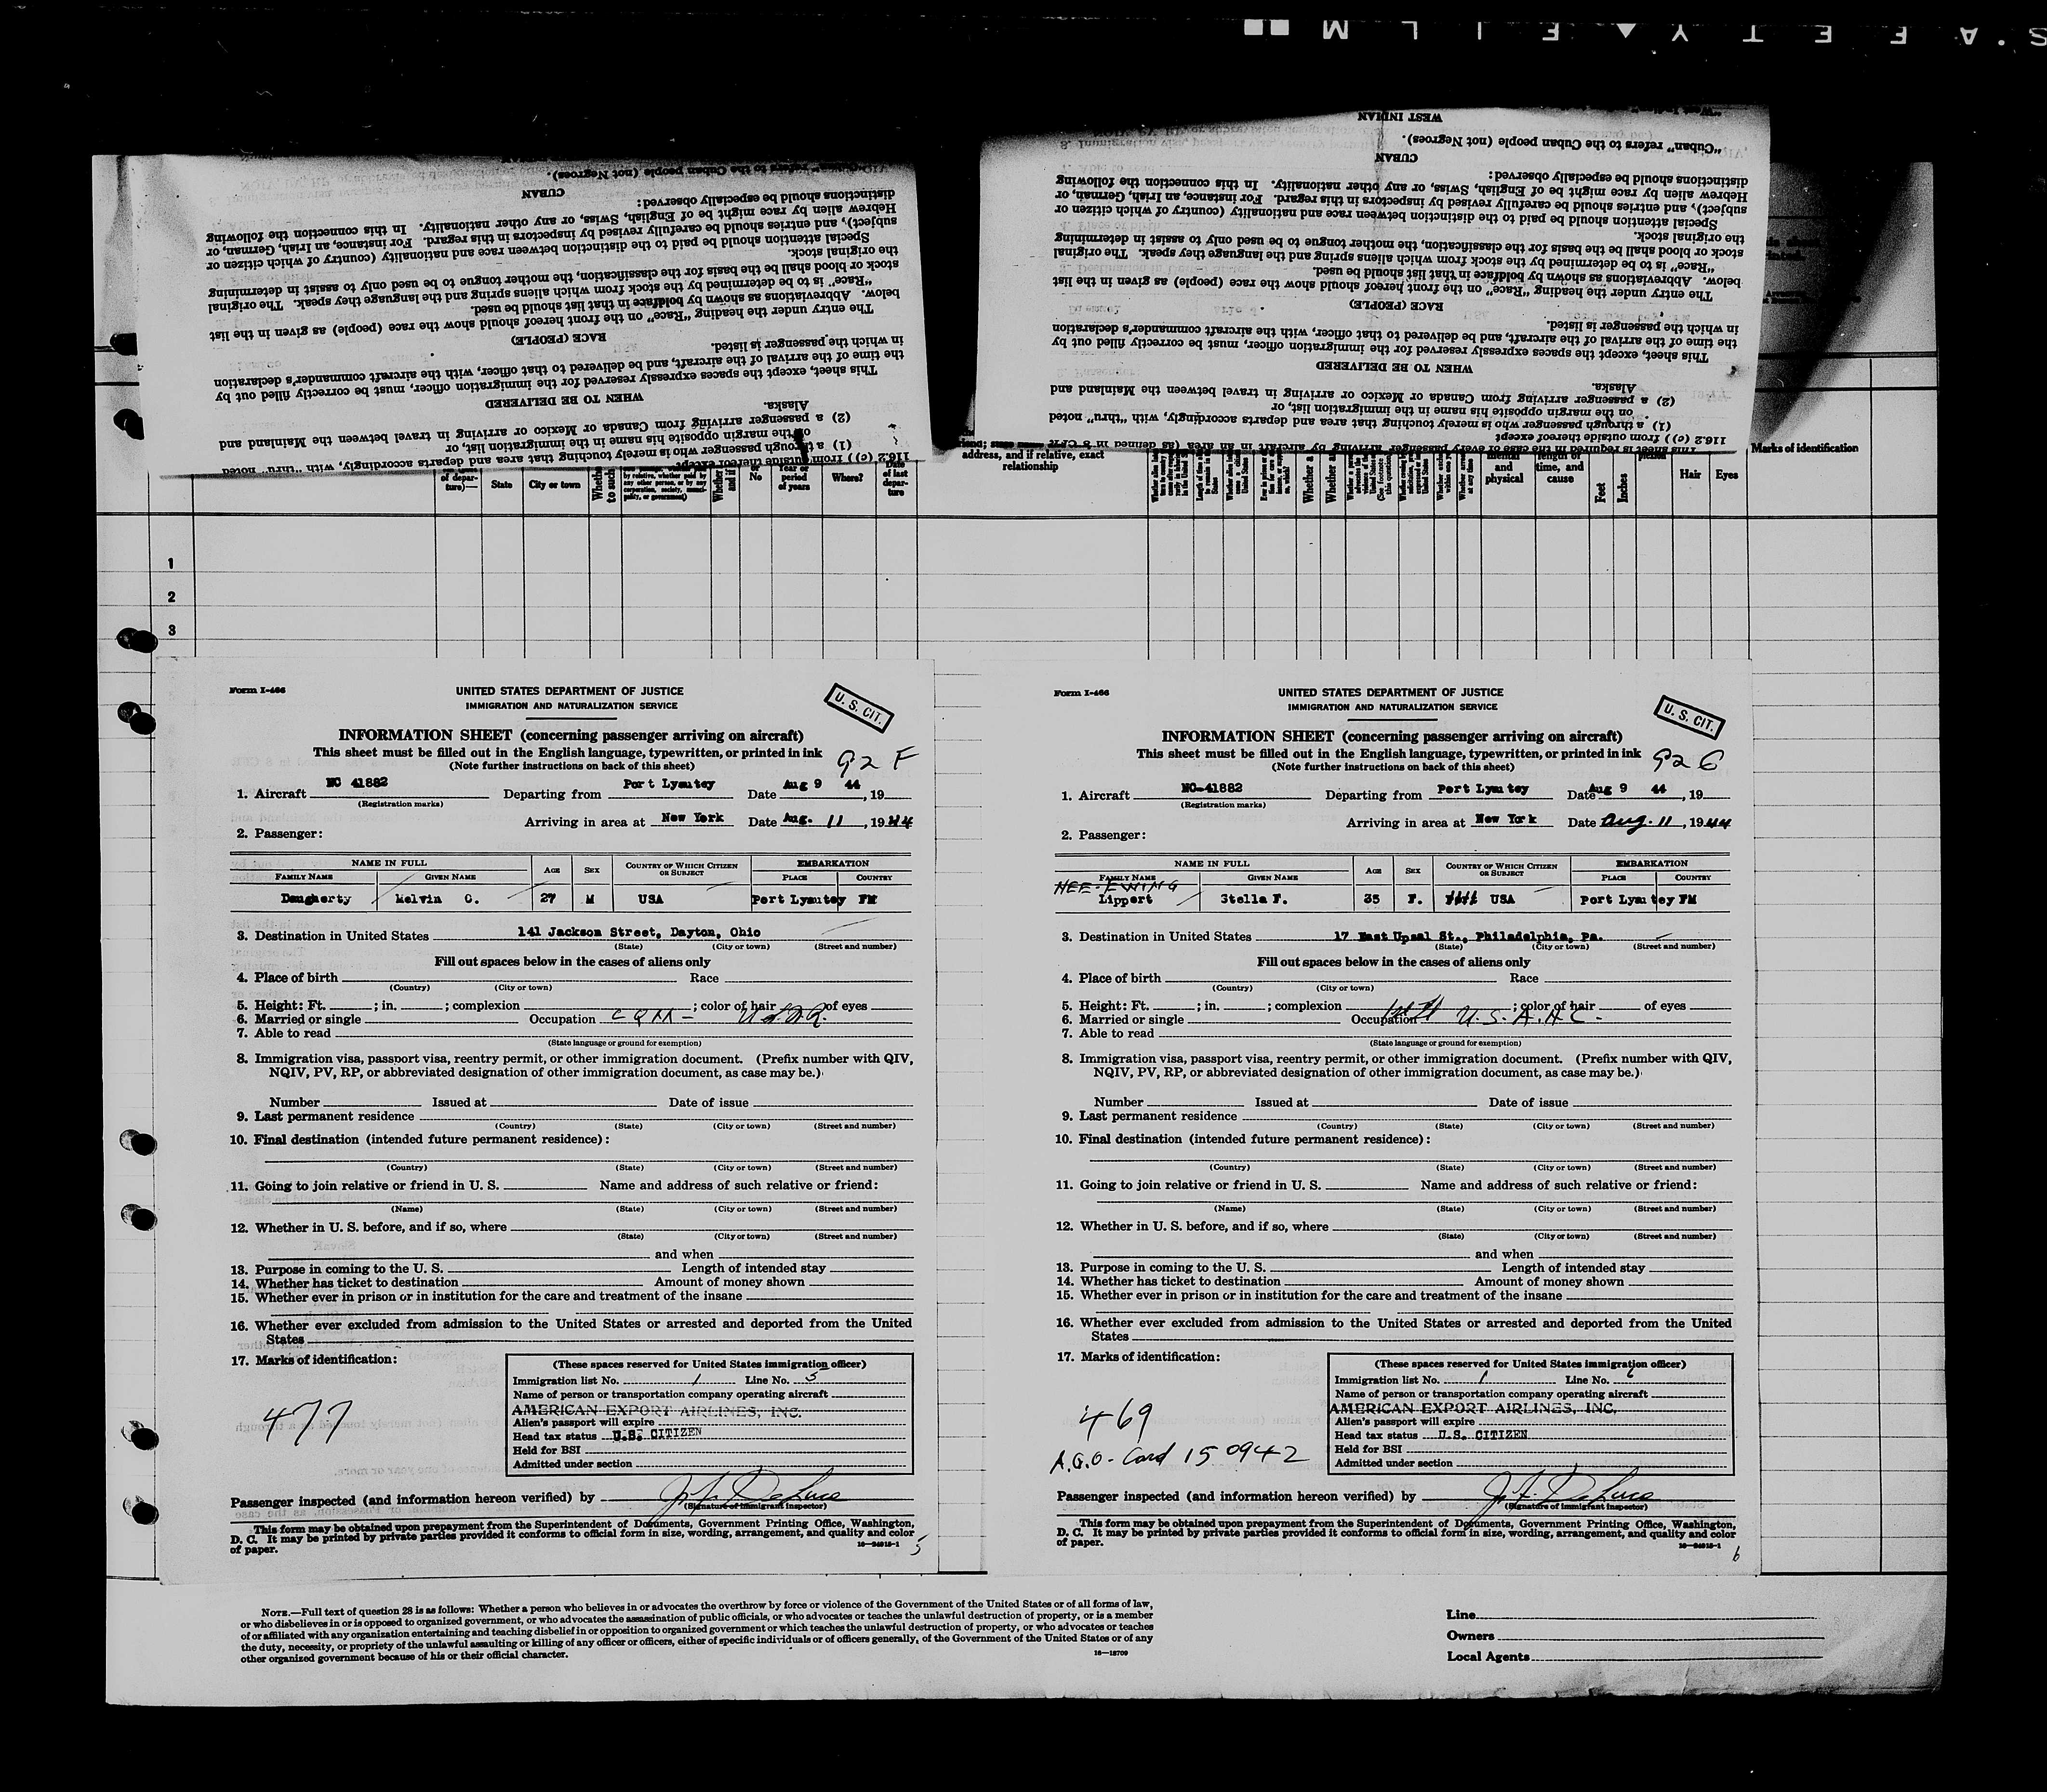 SAFETY▲FILM
WEST INDIAN
"Cuban" refers to the Cuban people (not Negroes).
CUBAN
distinctions should be especially observed:
Hebrew alien by race might be of English, Swiss, or any other nationality. In this connection the following
subject), and entries should be carefully revised by inspectors in this regard. For instance, an Irish, German, or
Special attention should be paid to the distinction between race and nationality (country of which citizen or
the original stock.
stock or blood shall be the basis for the classification, the mother tongue to be used only to assist in determining
"Race" is to be determined by the stock from which aliens spring and the language they speak. The original
below. Abbreviations as shown by boldface in that list should be used.
The entry under the heading "Race" on the front hereof should show the race (people) as given in the list
RACE (PEOPLE)
in which the passenger is listed.
the time of the arrival of the aircraft, and be delivered to that officer, with the aircraft commander's declaration
This sheet, except the spaces expressly reserved for the immigration officer, must be correctly filled out by
WHEN TO BE DELIVERED
Alaska.
(2) a passenger arriving from Canada or Mexico or arriving in travel between the Mainland and
on the margin opposite his name in the immigration list, or
(1) a through passenger who is merely touching that area and departs accordingly, with "thru" noted
116.2 (c)) from outside thereof except
This sheet is required in the case of every passenger arriving by aircraft in an area (as defined in 8 CFR
"Cuban" refers to the Cuban people (not Negroes).
CUBAN
distinctions should be especially observed:
Hebrew alien by race might be of English, Swiss, or any other nationality. In this connection the following
subject), and entries should be carefully revised by inspectors in this regard. For instance, an Irish, German, or
Special attention should be paid to the distinction between race and nationality (country of which citizen or
the original stock.
stock or blood shall be the basis for the classification, the mother tongue to be used only to assist in determining
"Race" is to be determined by the stock from which aliens spring and the language they speak. The original
below. Abbreviations as shown by boldface in that list should be used.
The entry under the heading "Race" on the front hereof should show the race (people) as given in the list
RACE (PEOPLE)
in which the passenger is listed.
the time of the arrival of the aircraft, and be delivered to that officer, with the aircraft commander's declaration
This sheet, except the spaces expressly reserved for the immigration officer, must be correctly filled out by
WHEN TO BE DELIVERED
Alaska.
(2) a passenger arriving from Canada or Mexico or arriving in travel between the Mainland and
the margin opposite his name in the immigration list, or
(1) a through passenger who is merely touching that area and departs accordingly, with "thru" noted
116.2 (c)) from outside thereof except
of departure)—
State
City or town
Whether
to such
by relative, whether paid by any other person, or by any corporation, society, municipality, or government)
Whether
and if
or No
Year or period of years
Where?
Date of last departure
address, and if relative, exact relationship
mental and physical
length of time, and cause
Feet
Inches
Hair
Eyes
Marks of identification
1
2
3
Form I-466
UNITED STATES DEPARTMENT OF JUSTICE
IMMIGRATION AND NATURALIZATION SERVICE
U. S. CIT.
INFORMATION SHEET (concerning passenger arriving on aircraft)
This sheet must be filled out in the English language, typewritten, or printed in ink
(Note further instructions on back of this sheet)
92 F
1. Aircraft NC 41882 Departing from Port Lyautey Date Aug 9 44, 19
(Registration marks)
Arriving in area at New York Date Aug. 11, 1944
2. Passenger:
NAME IN FULL AGE SEX COUNTRY OF WHICH CITIZEN OR SUBJECT EMBARKATION
FAMILY NAME GIVEN NAME PLACE COUNTRY
Daugherty Melvin O. 27 M USA Port Lyautey FM
3. Destination in United States 141 Jackson Street, Dayton, Ohio
(State) (City or town) (Street and number)
Fill out spaces below in the cases of aliens only
4. Place of birth Race
(Country) (City or town)
5. Height: Ft. ; in. ; complexion ; color of hair of eyes
6. Married or single Occupation CQM - U.S.N.R.
7. Able to read
(State language or ground for exemption)
8. Immigration visa, passport visa, reentry permit, or other immigration document. (Prefix number with QIV,
NQIV, PV, RP, or abbreviated designation of other immigration document, as case may be.)
Number Issued at Date of issue
9. Last permanent residence
(Country) (State) (City or town) (Street and number)
10. Final destination (intended future permanent residence):
(Country) (State) (City or town) (Street and number)
11. Going to join relative or friend in U. S. Name and address of such relative or friend:
(Name) (State) (City or town) (Street and number)
12. Whether in U. S. before, and if so, where
(State) (City or town) (Street and number)
and when
13. Purpose in coming to the U. S. Length of intended stay
14. Whether has ticket to destination Amount of money shown
15. Whether ever in prison or in institution for the care and treatment of the insane
16. Whether ever excluded from admission to the United States or arrested and deported from the United
States
17. Marks of identification:
477
(These spaces reserved for United States immigration officer)
Immigration list No. 1 Line No. 5
Name of person or transportation company operating aircraft
AMERICAN EXPORT AIRLINES, INC.
Alien's passport will expire
Head tax status U.S. CITIZEN
Held for BSI
Admitted under section
Passenger inspected (and information hereon verified) by
(Signature of immigrant inspector)
This form may be obtained upon prepayment from the Superintendent of Documents, Government Printing Office, Washington,
D. C. It may be printed by private parties provided it conforms to official form in size, wording, arrangement, and quality and color
of paper.
16—24915-1
5
Form I-466
UNITED STATES DEPARTMENT OF JUSTICE
IMMIGRATION AND NATURALIZATION SERVICE
U. S. CIT.
INFORMATION SHEET (concerning passenger arriving on aircraft)
This sheet must be filled out in the English language, typewritten, or printed in ink
(Note further instructions on back of this sheet)
92 G
1. Aircraft NC-41882 Departing from Port Lyautey Date Aug 9 44, 19
(Registration marks)
Arriving in area at New York Date Aug. 11, 1944
2. Passenger:
NAME IN FULL AGE SEX COUNTRY OF WHICH CITIZEN OR SUBJECT EMBARKATION
FAMILY NAME GIVEN NAME PLACE COUNTRY
NEE-EWING
Lippert Stella F. 35 F. USA Port Lyautey FM
3. Destination in United States 17 East Upsal St., Philadelphia, Pa.
(State) (City or town) (Street and number)
Fill out spaces below in the cases of aliens only
4. Place of birth Race
(Country) (City or town)
5. Height: Ft. ; in. ; complexion ; color of hair of eyes
6. Married or single Occupation U.S.A.N.C.
7. Able to read
(State language or ground for exemption)
8. Immigration visa, passport visa, reentry permit, or other immigration document. (Prefix number with QIV,
NQIV, PV, RP, or abbreviated designation of other immigration document, as case may be.)
Number Issued at Date of issue
9. Last permanent residence
(Country) (State) (City or town) (Street and number)
10. Final destination (intended future permanent residence):
(Country) (State) (City or town) (Street and number)
11. Going to join relative or friend in U. S. Name and address of such relative or friend:
(Name) (State) (City or town) (Street and number)
12. Whether in U. S. before, and if so, where
(State) (City or town) (Street and number)
and when
13. Purpose in coming to the U. S. Length of intended stay
14. Whether has ticket to destination Amount of money shown
15. Whether ever in prison or in institution for the care and treatment of the insane
16. Whether ever excluded from admission to the United States or arrested and deported from the United
States
17. Marks of identification:
469
A.G.O. Card 150942
(These spaces reserved for United States immigration officer)
Immigration list No. 1 Line No. 6
Name of person or transportation company operating aircraft
AMERICAN EXPORT AIRLINES, INC.
Alien's passport will expire
Head tax status U.S. CITIZEN
Held for BSI
Admitted under section
Passenger inspected (and information hereon verified) by
(Signature of immigrant inspector)
This form may be obtained upon prepayment from the Superintendent of Documents, Government Printing Office, Washington,
D. C. It may be printed by private parties provided it conforms to official form in size, wording, arrangement, and quality and color
of paper.
16—24915-1
6
NOTE.—Full text of question 28 is as follows: Whether a person who believes in or advocates the overthrow by force or violence of the Government of the United States or of all forms of law,
or who disbelieves in or is opposed to organized government, or who advocates the assassination of public officials, or who advocates or teaches the unlawful destruction of property, or is a member
of or affiliated with any organization entertaining and teaching disbelief in or opposition to organized government or which teaches the unlawful destruction of property, or who advocates or teaches
the duty, necessity, or propriety of the unlawful assaulting or killing of any officer or officers, either of specific individuals or of officers generally, of the Government of the United States or of any
other organized government because of his or their official character.
16—18709
Line
Owners
Local Agents